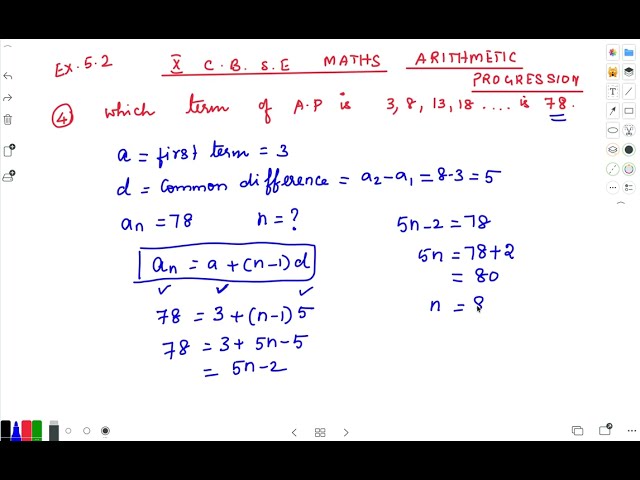 Ex.5.2 X C.B.S.E MATHS ARITHMETIC PROGRESSION
④ which term of A.P is 3, 8, 13, 18 .... is 78.
a = first term = 3
d = Common difference = a₂ - a₁ = 8-3 = 5
aₙ = 78 n = ?
aₙ = a + (n-1) d
78 = 3 + (n-1) 5
78 = 3 + 5n - 5
= 5n - 2
5n - 2 = 78
5n = 78 + 2
= 80
n = 8